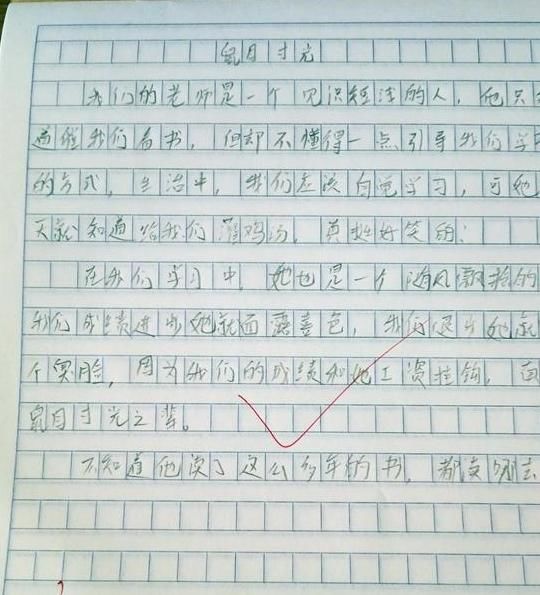 鼠目寸光
我们的老师是一个见识短浅的人，他只知
道催我们看书，但却不懂得一点引导我们学习
的方式，生活中，我们应该自觉学习，可她
天就知道给我们灌鸡汤，真挺好笑的！
在我们学习中，她也是一个随风飘拾的
我们成绩进步她就面露喜色，我们退步她就
个臭脸，因为我们的成绩和她工资挂钩，真
鼠目寸光之辈。
不知道他读了这么多年的书，都读哪去